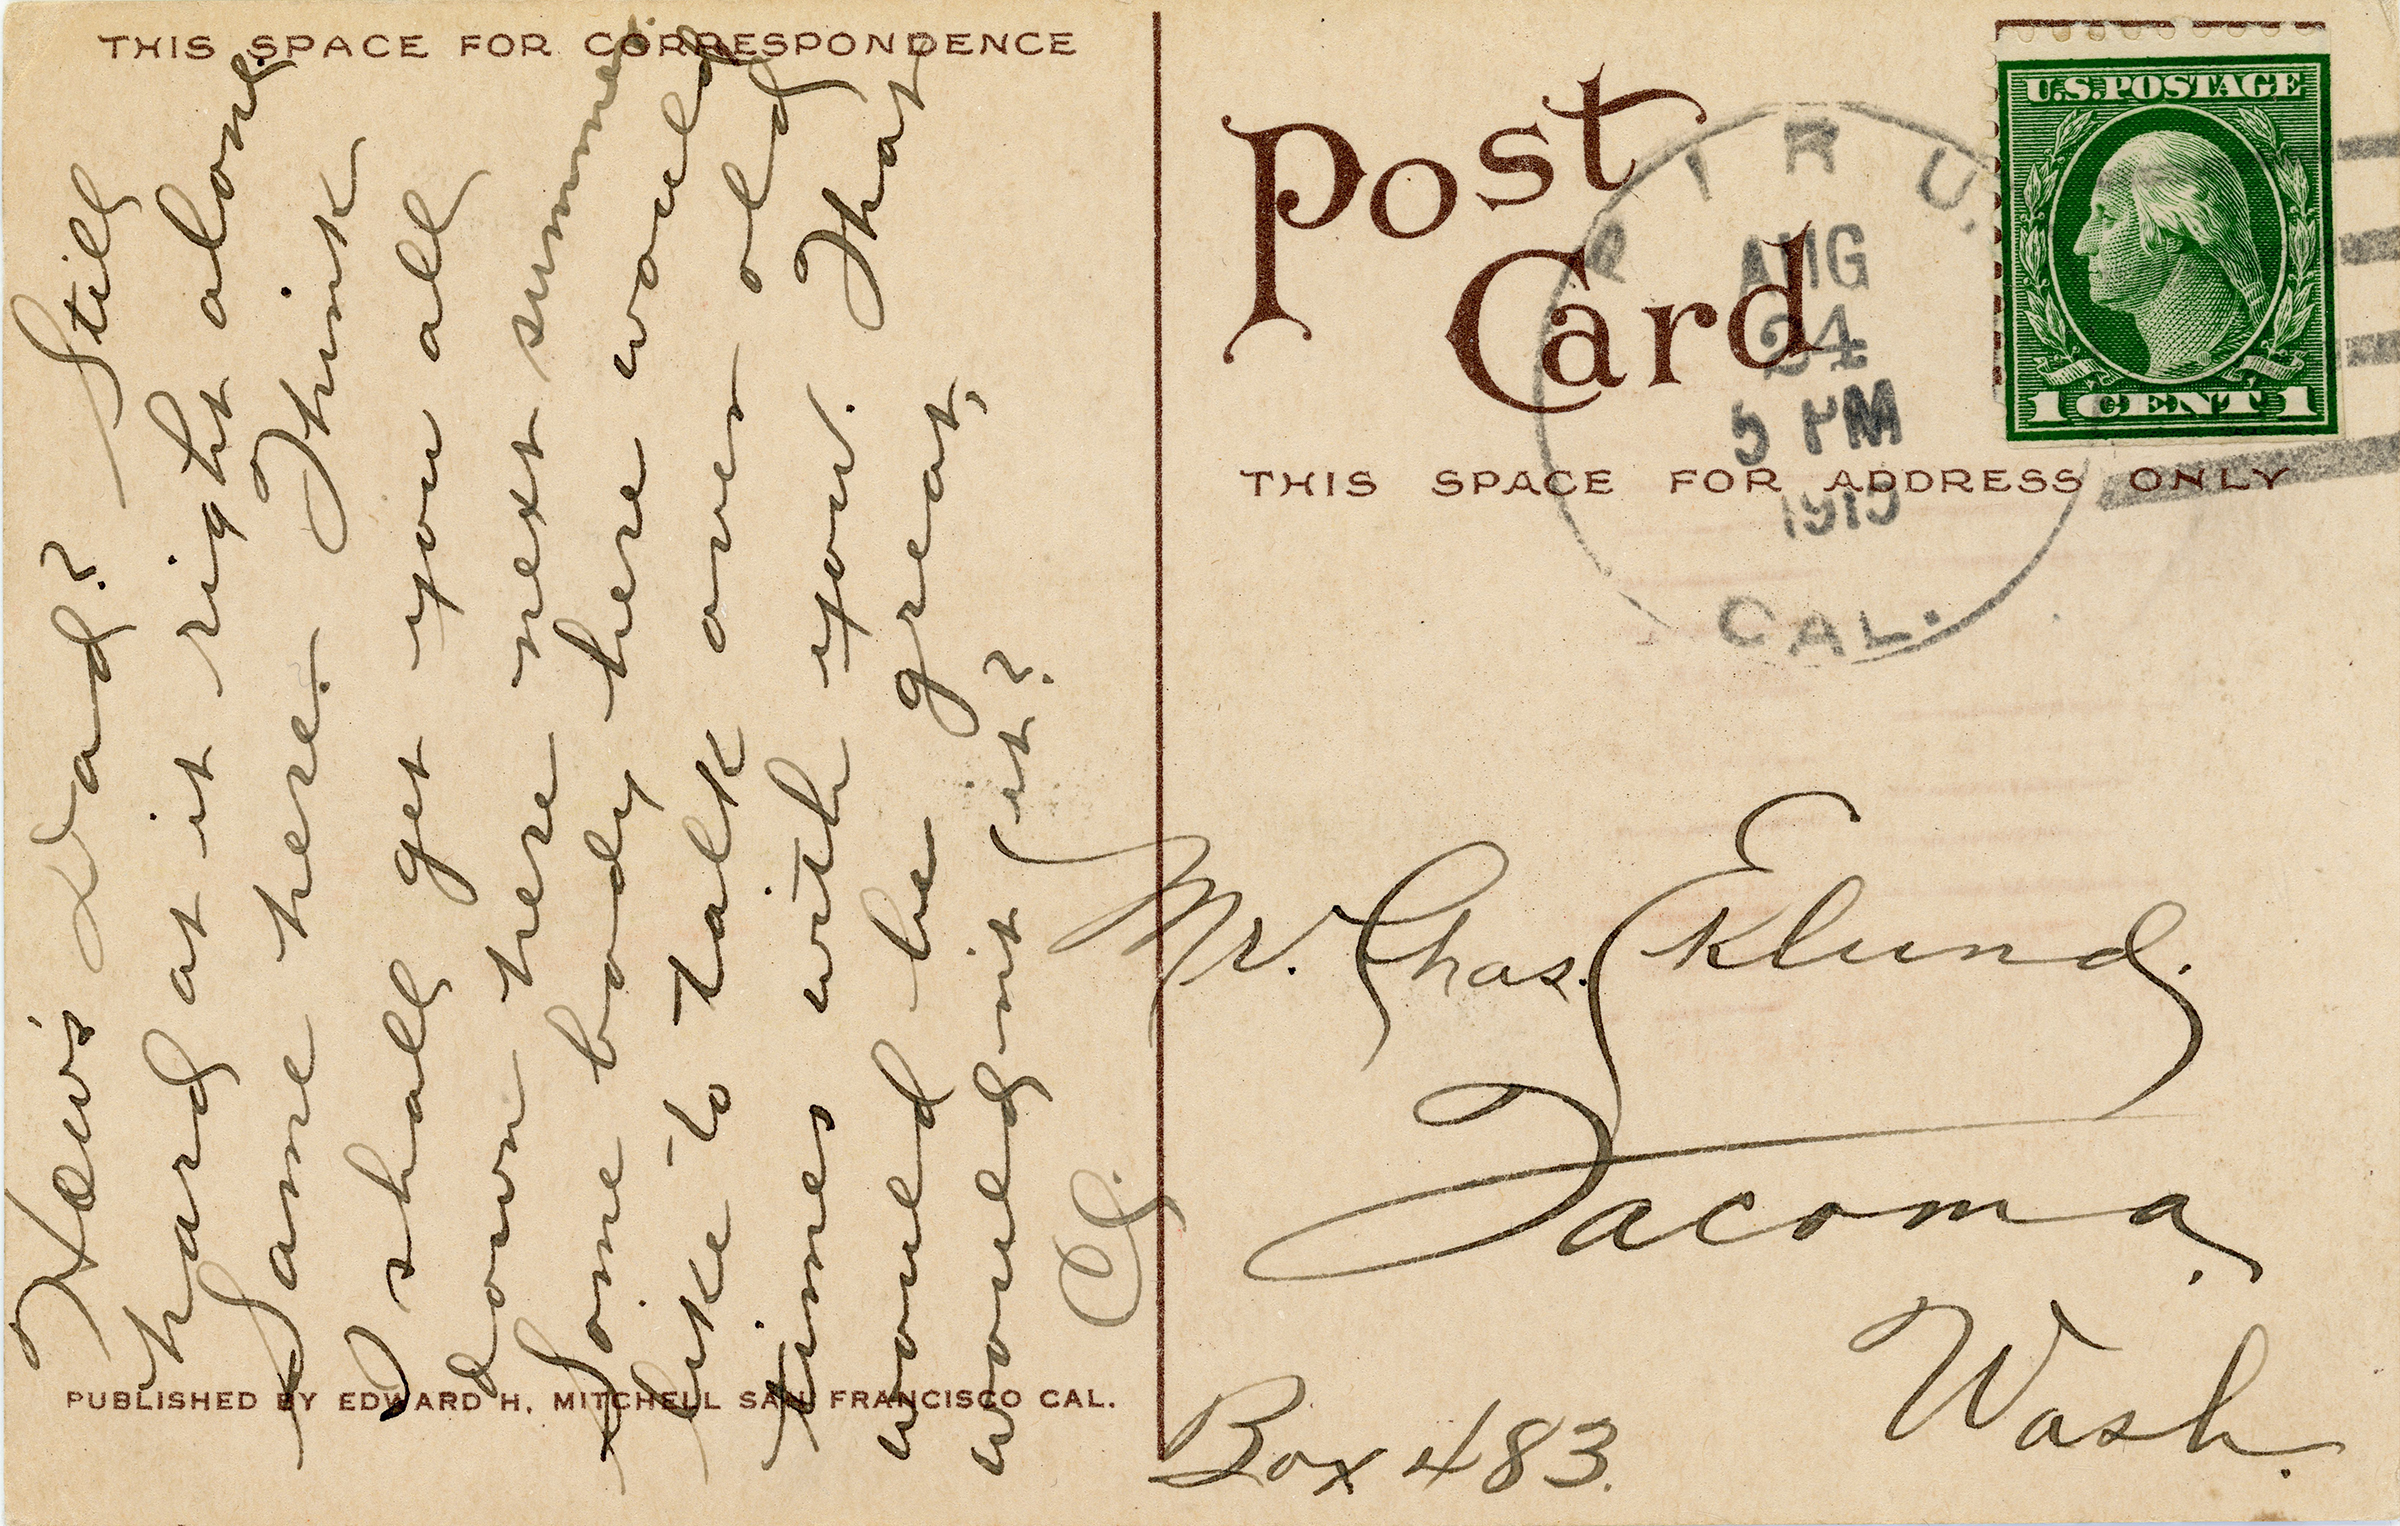 THIS SPACE FOR CORRESPONDENCE
How's Dad? Still
hard at it right along.
Same here. Think
I shall get you all
down here next summer.
Some body here would
like to talk over old
times with you. That
would be great,
would nit it?
C.
PUBLISHED BY EDWARD H. MITCHELL SAN FRANCISCO CAL.
Post
Card
THIS SPACE FOR ADDRESS ONLY
U.S. POSTAGE
1 CENT 1
PIRU.
AUG
24
5 PM
CAL.
Mr. Chas. Eklund.
Tacoma.
Wash.
Box 483.